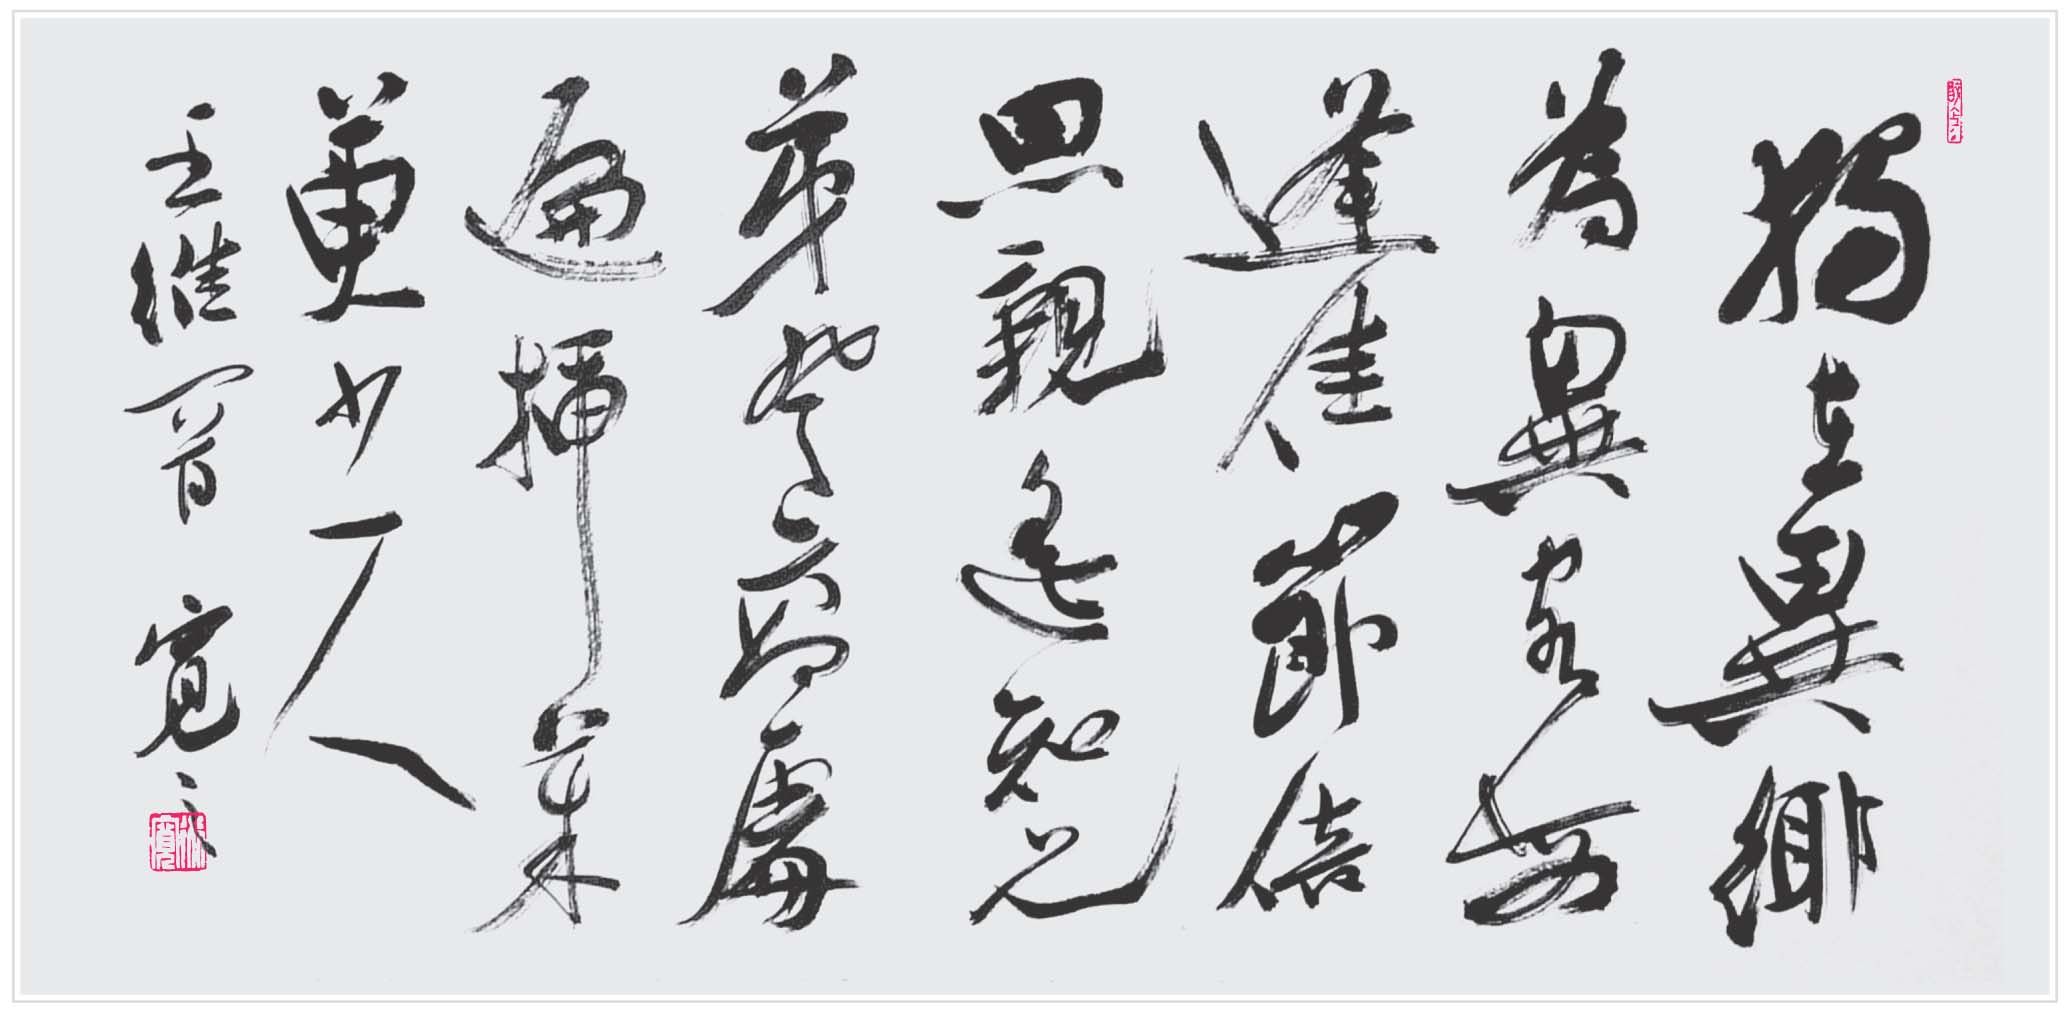 獨在異鄉
為異客每
逢佳節倍
思親遙知兄
弟登高處
遍插茱
萸少一人
王維一首 寬之